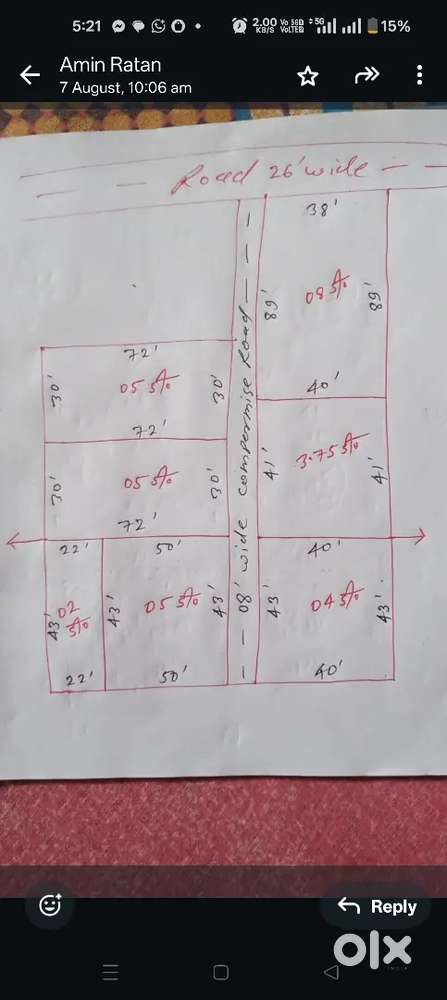 5:21
2.00 KB/S
Vo 5G VoLTE
5G
15%
Amin Ratan
7 August, 10:06 am
Road 26' wide
38'
89'
08 s/o
89'
40'
72'
30'
05 s/o
30'
72'
30'
05 s/o
30'
72'
08' wide compermise Road
41'
3.75 s/o
41'
22'
50'
40'
43'
02 s/o
43'
05 s/o
43'
43'
04 s/o
43'
22'
50'
40'
Reply
olx
INDIA